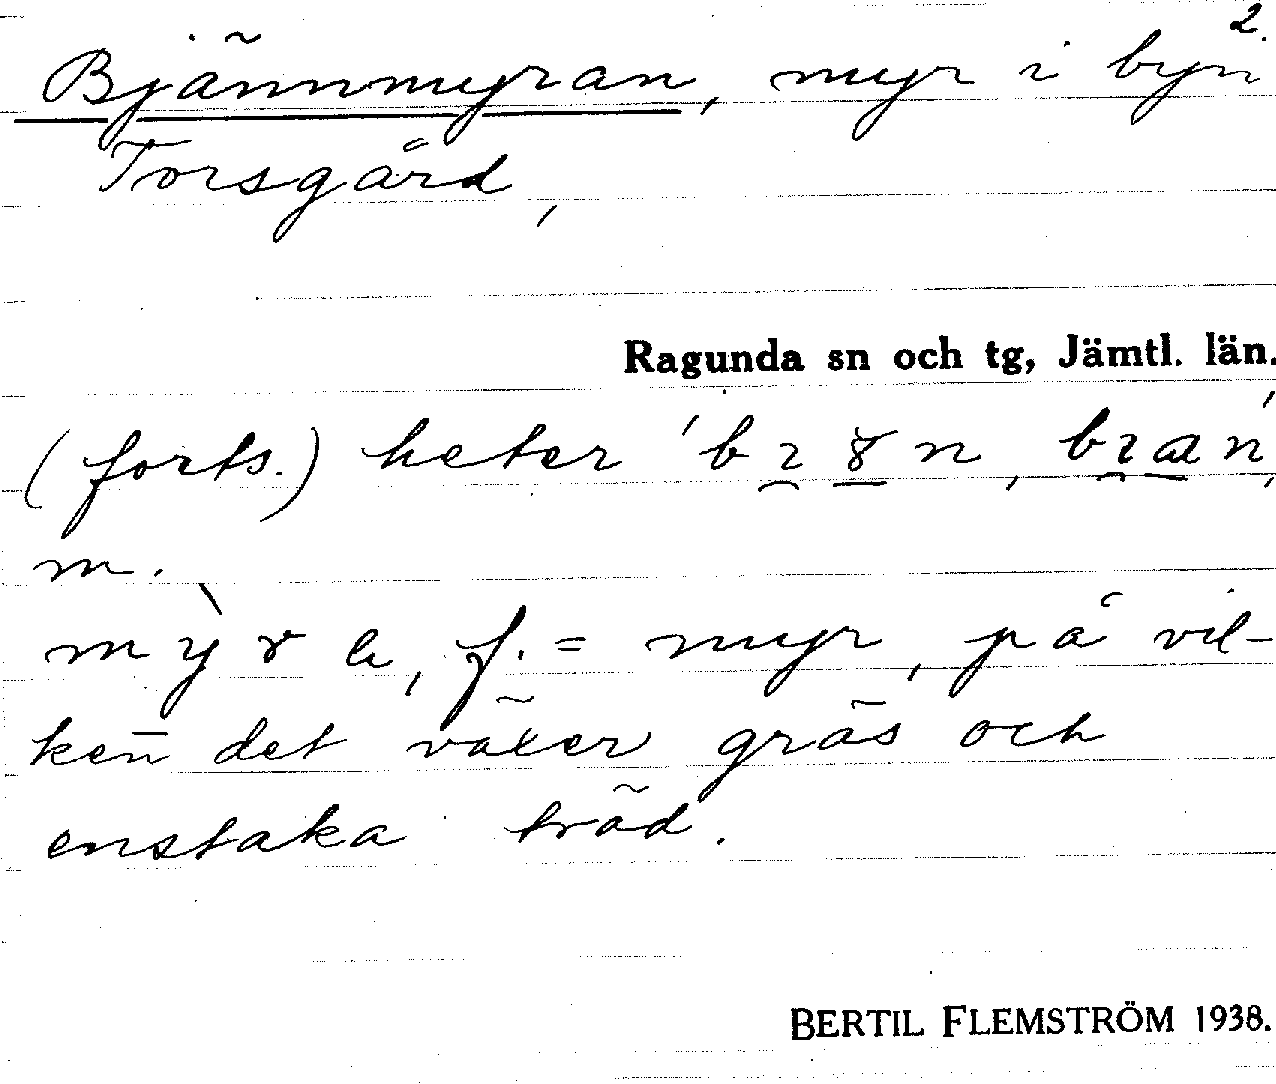 2.
Bjännmyran, myr i byn
Torsgård,
Ragunda sn och tg, Jämtl. län.
(forts.) heter
m.
f. = myr, på vil-
ken det växer gräs och
enstaka träd.
BERTIL FLEMSTRÖM 1938.